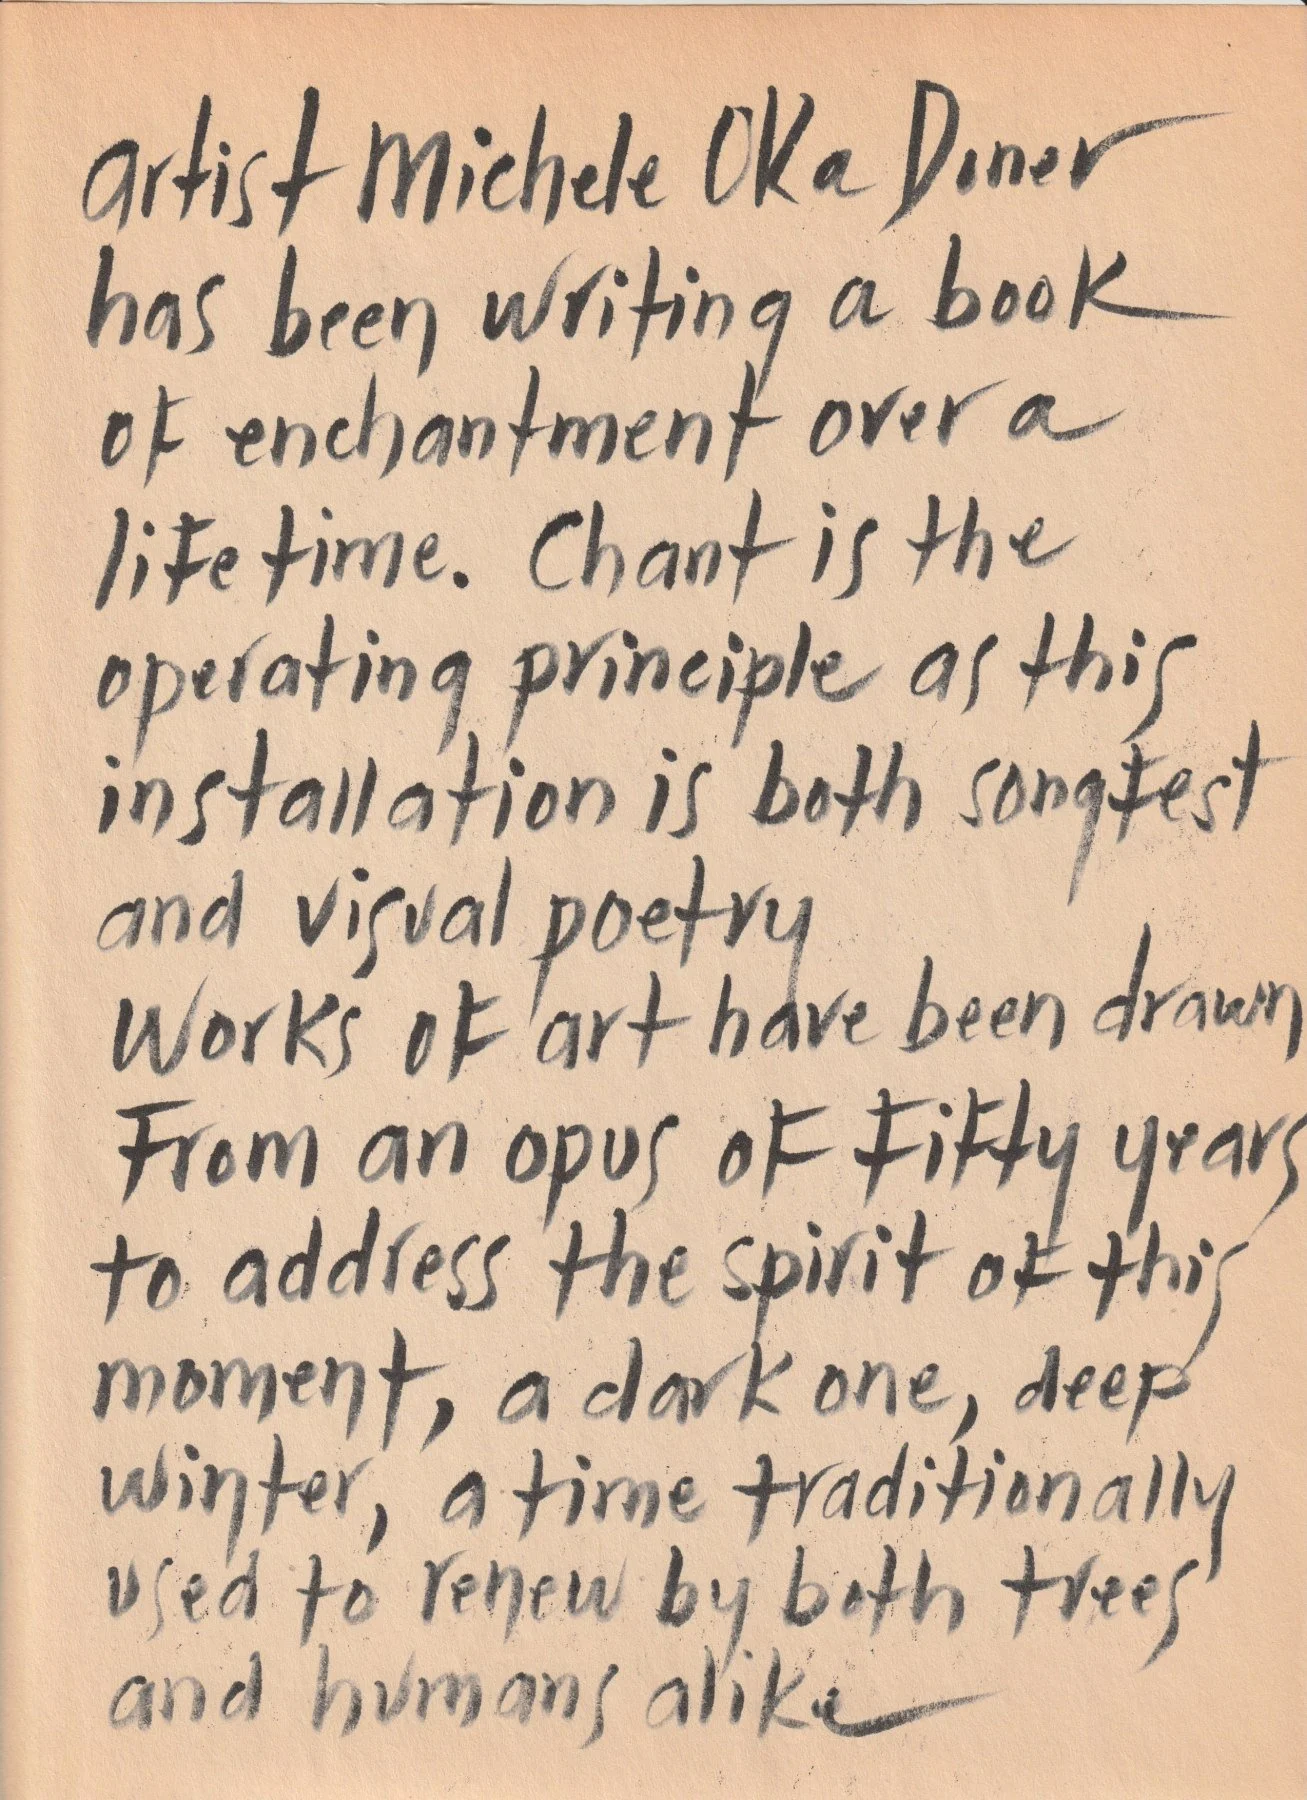 artist Michele Oka Doner
has been writing a book
of enchantment over a
lifetime. Chant is the
operating principle as this
installation is both songfest
and visual poetry
Works of art have been drawn
From an opus of fifty years
to address the spirit of this
moment, a dark one, deep
winter, a time traditionally
used to renew by both trees
and humans alike